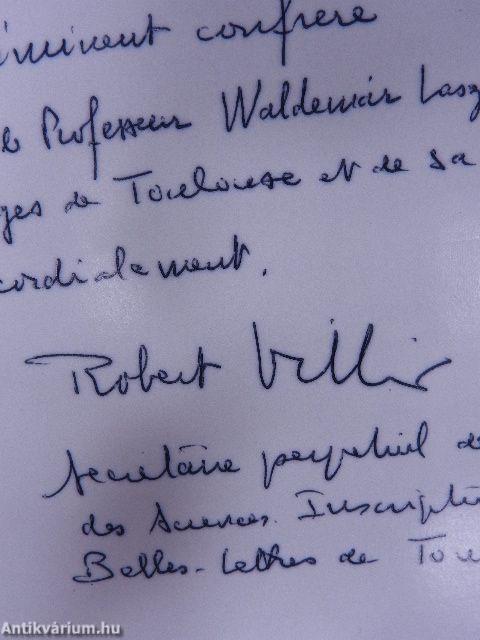 éminent confrère
le Professeur Waldemar Lasz
ges de Toulouse et de sa
cordialement.
Robert Villis
Secrétaire perpétuel de
des Sciences Inscriptio
Belles-Lettres de Tou
Antikvárium.hu